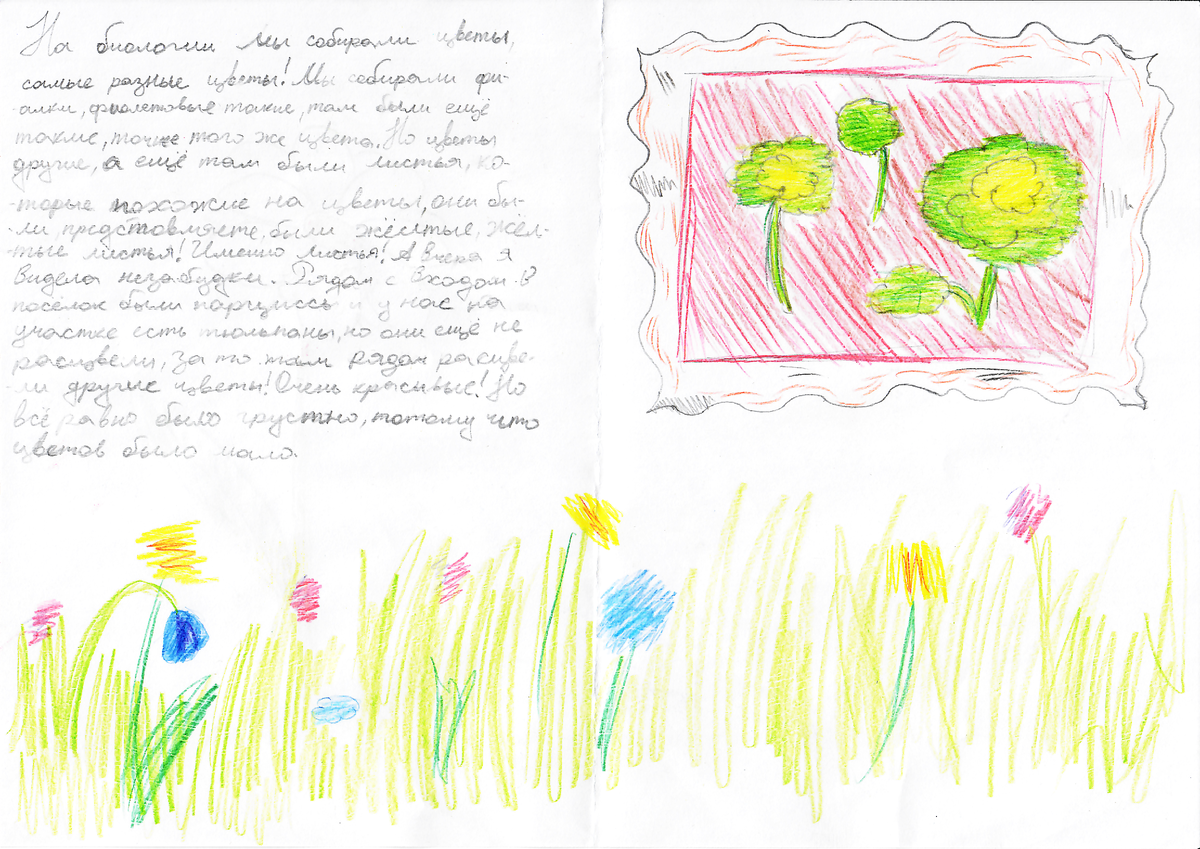 На биологии мы собирали цветы,
самые разные цветы! Мы собирали фи-
-алки, фиолетовые такие, там были ещё
такие, точне того же цвета. Но цветы
другие, а ещё там были листья, ко-
-торые похожие на цветы, они бы-
-ли представляете, были жёлтые, жёл-
-тые листья! Именно листья! А вчера я
видела незабудки. Рядом с входом в
посёлок были нарциссы и у нас на
участке есть тюльпаны, но они ещё не
расцвели, за то там рядом расцве-
-ли другие цветы! Очень красивые! Но
всё равно было грустно, потому что
цветов было мало.